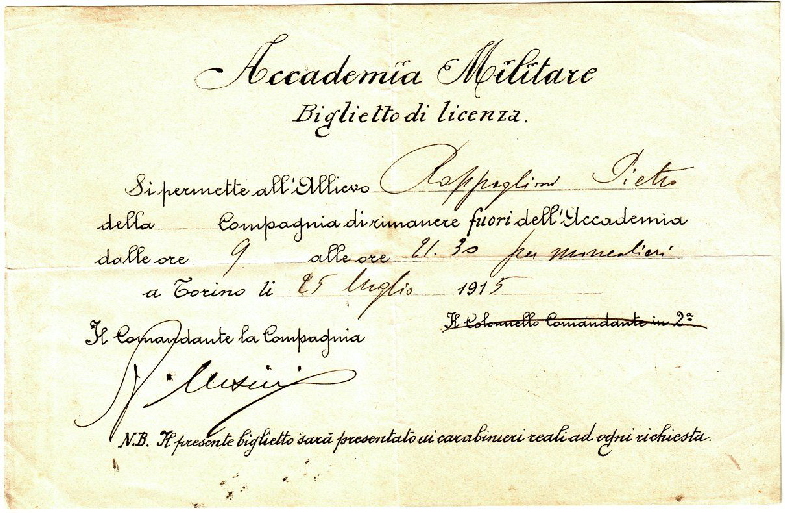 Accademia Militare
Biglietto di licenza.
Si permette all'Allievo Pietro
della Compagnia di rimanere fuori dell'Accademia
dalle ore 9 alle ore 21.30 per moncalieri
a Torino li 25 luglio 1915
Il Comandante la Compagnia
Il Colonnello Comandante in 2ª
N.B. Il presente biglietto sarà presentato ai carabinieri reali ad ogni richiesta.